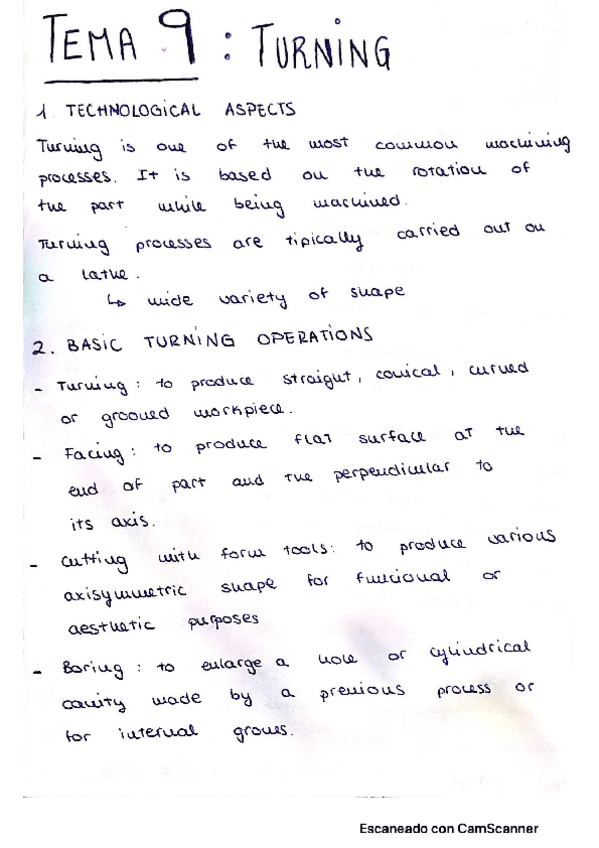 TEMA 9 : TURNING
1. TECHNOLOGICAL ASPECTS
Turning is one of the most common machining
processes. It is based on the rotation of
the part while being machined.
Turning processes are tipically carried out on
a lathe.
↳ wide variety of shape
2. BASIC TURNING OPERATIONS
- Turning: to produce straignt, conical, curved
or grooved workpiece.
- Facing: to produce flat surface at the
end of part and the perpendicular to
its axis.
- Cutting with form tools: to produce various
axisymmetric shape for funcional or
aesthetic purposes
- Boring: to enlarge a hole or cylindrical
cavity made by a previous process or
for internal groves.
Escaneado con CamScanner